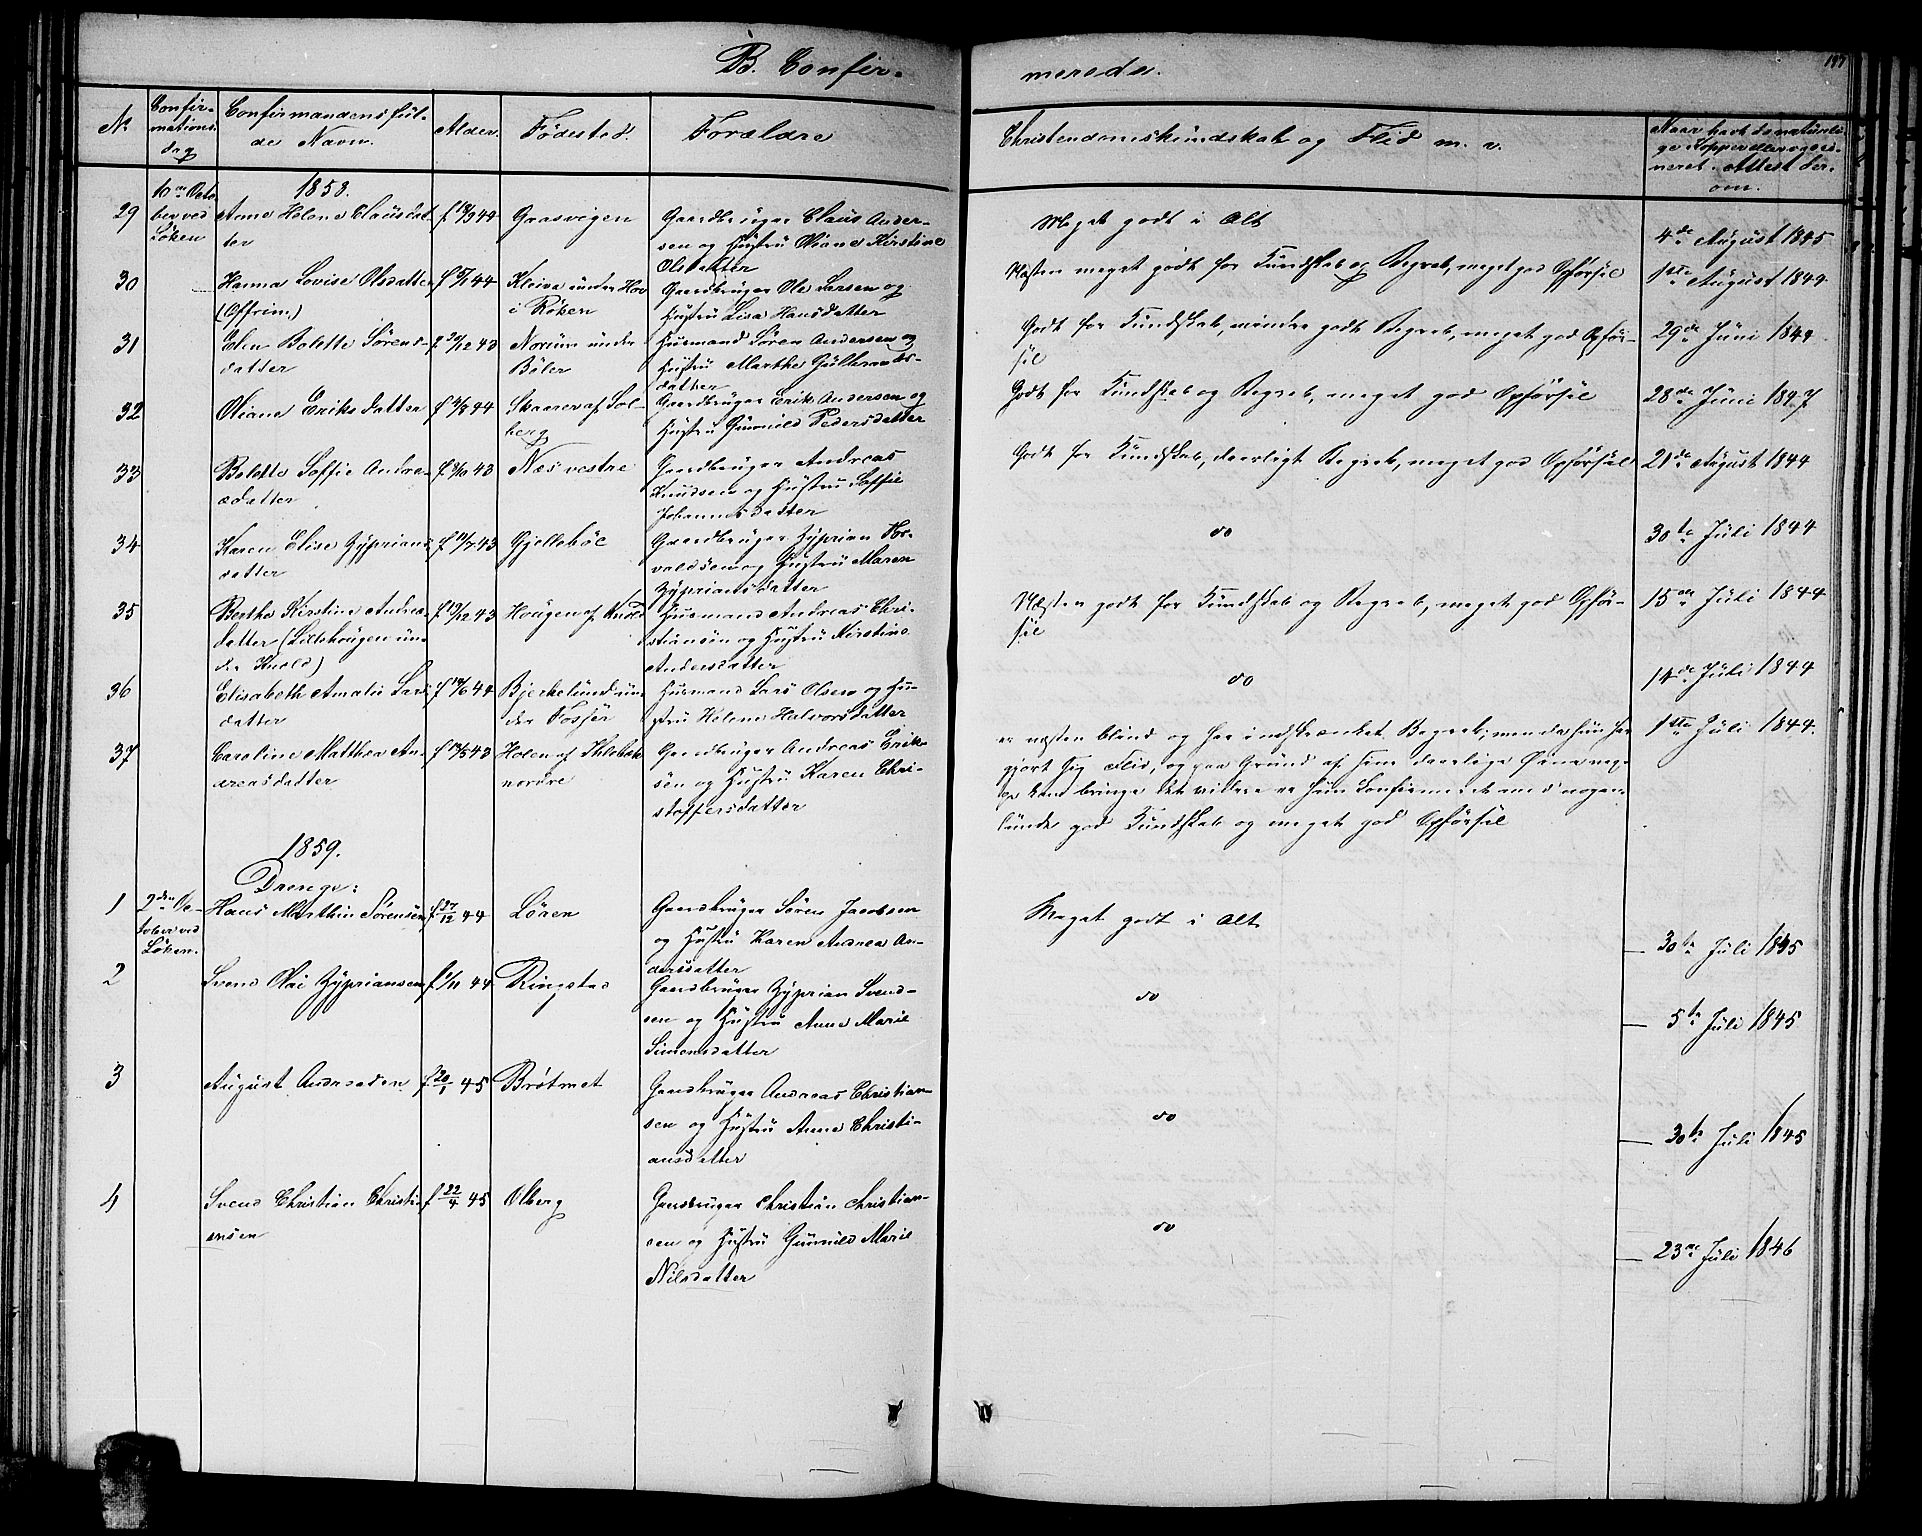 B. Confirmerede.
No
Confirmations dag
Confirmandens fulde Navn.
Alder.
Fødested
Forældre
Christendomskundskab og Flid m. v.
Naar havt de naturlige Kopper eller vaccineret. Attest derom.
1858.
29 10de October ved Løken Anne Helene Clausdatter f 44 Gaasvigen Gaardbruger Claus Andersen og Hustru Oliane Kirstine Olsdatter Meget godt i Alt 4de August 1845
30 Hanna Lovise Olsdatter f 44 Kleiva under Hov i Røken Gaardbruger Ole Larsen og Hustru Lisa Hansdatter Næsten meget godt for Kundskab og Begreb, meget god Opførsel 1ste August 1844
31 Elen Bolette Sørensdatter 43 under Bøler Husmand Søren Andersen og Hustru Marthe Gulbrandsdatter Godt for Kundskab, mindre godt Begreb, meget god Opførsel 29de Juni 1844
32 Oliane Eriksdatter f 44 Skaarer af Solberg Gaardbruger Erik Andersen og Hustru Gunnild Pedersdatter Godt for Kundskab og Begreb, meget god Opførsel 28de Juni 1847
33 Bolette Soffie Andreasdatter f 43 Næs vestre Gaardbruger Andreas Knudsen og Hustru Soffie Johannesdatter Godt for Kundskab, daarligt Begreb, meget god Opførsel 21de August 1844
34 Karen Elise Zypriansdatter f 43 Gjellebøl Gaardbruger Zyprian Thorvaldsen og Hustru Maren Zypriansdatter do 30te Juli 1844
35 Berthe Kirstine Andreasdatter (Lillehougen under Knold) f 19/12 43 Hougen af Knold Husmand Andreas Christiansen og Hustru Kirstine Andersdatter Næsten godt for Kundskab og Begreb, meget god Opførsel 15de Juli 1844
36 Elisabeth Amalie Larsdatter f 44 Bjerkelund under Fosser Husmand Lars Olsen og Hustru Helene Halvorsdatter do 14de Juli 1844
37 Caroline Mathea Andreasdatter f 43 Holen af nordre Gaardbruger Andreas Eriksen og Hustru Karen Christoffersdatter er næsten blind og har indskrænket Begreb; men da hun har gjort sig Flid, og paa Grund af sine daarlige Øine neppe kan bringe det videre er hun Confirmeret med nogenlunde god Kundskab og meget god Opførsel 1ste Juli 1844.
1859.
Drenge:
1 2den October ved Løken. Hans Marthin Sørensen f 27/12 44 Løren Gaardbruger Søren Jacobsen og Hustru Karen Andrea Andersdatter Meget godt i Alt 30te Juli 1845
2 Svend Olai Zypriansen f 44 Ringstad Gaardbruger Zyprian Svendsen og Hustru Anne Marie Simonsdatter do 5te Juli 1845
3 August Andreasen f. 20/1 45 Brøtmet Gaardbruger Andreas Christiansen og Hustru Anne Christiansdatter do 30te Juli 1845
4 Svend Christian Christiansen f 22/4 45 Olberg Gaardbruger Christian Christiansen og Hustru Gunnild Marie Nilsdatter do 23de Juli 1846